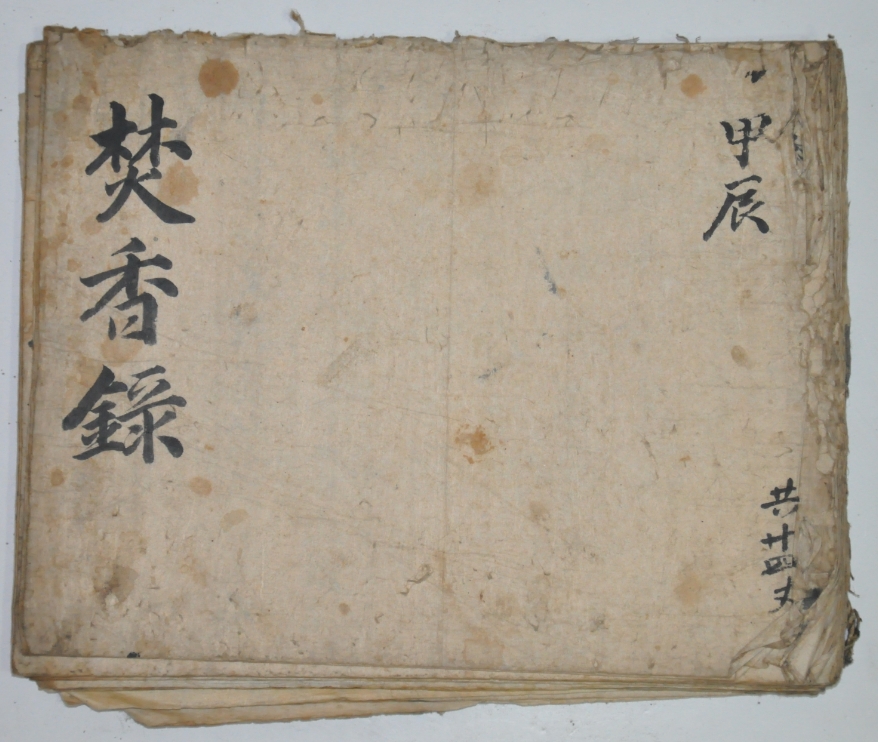 甲辰
共廿四丈
焚香錄